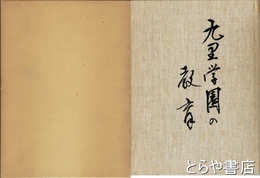 九里学園の
教育
とらや書店